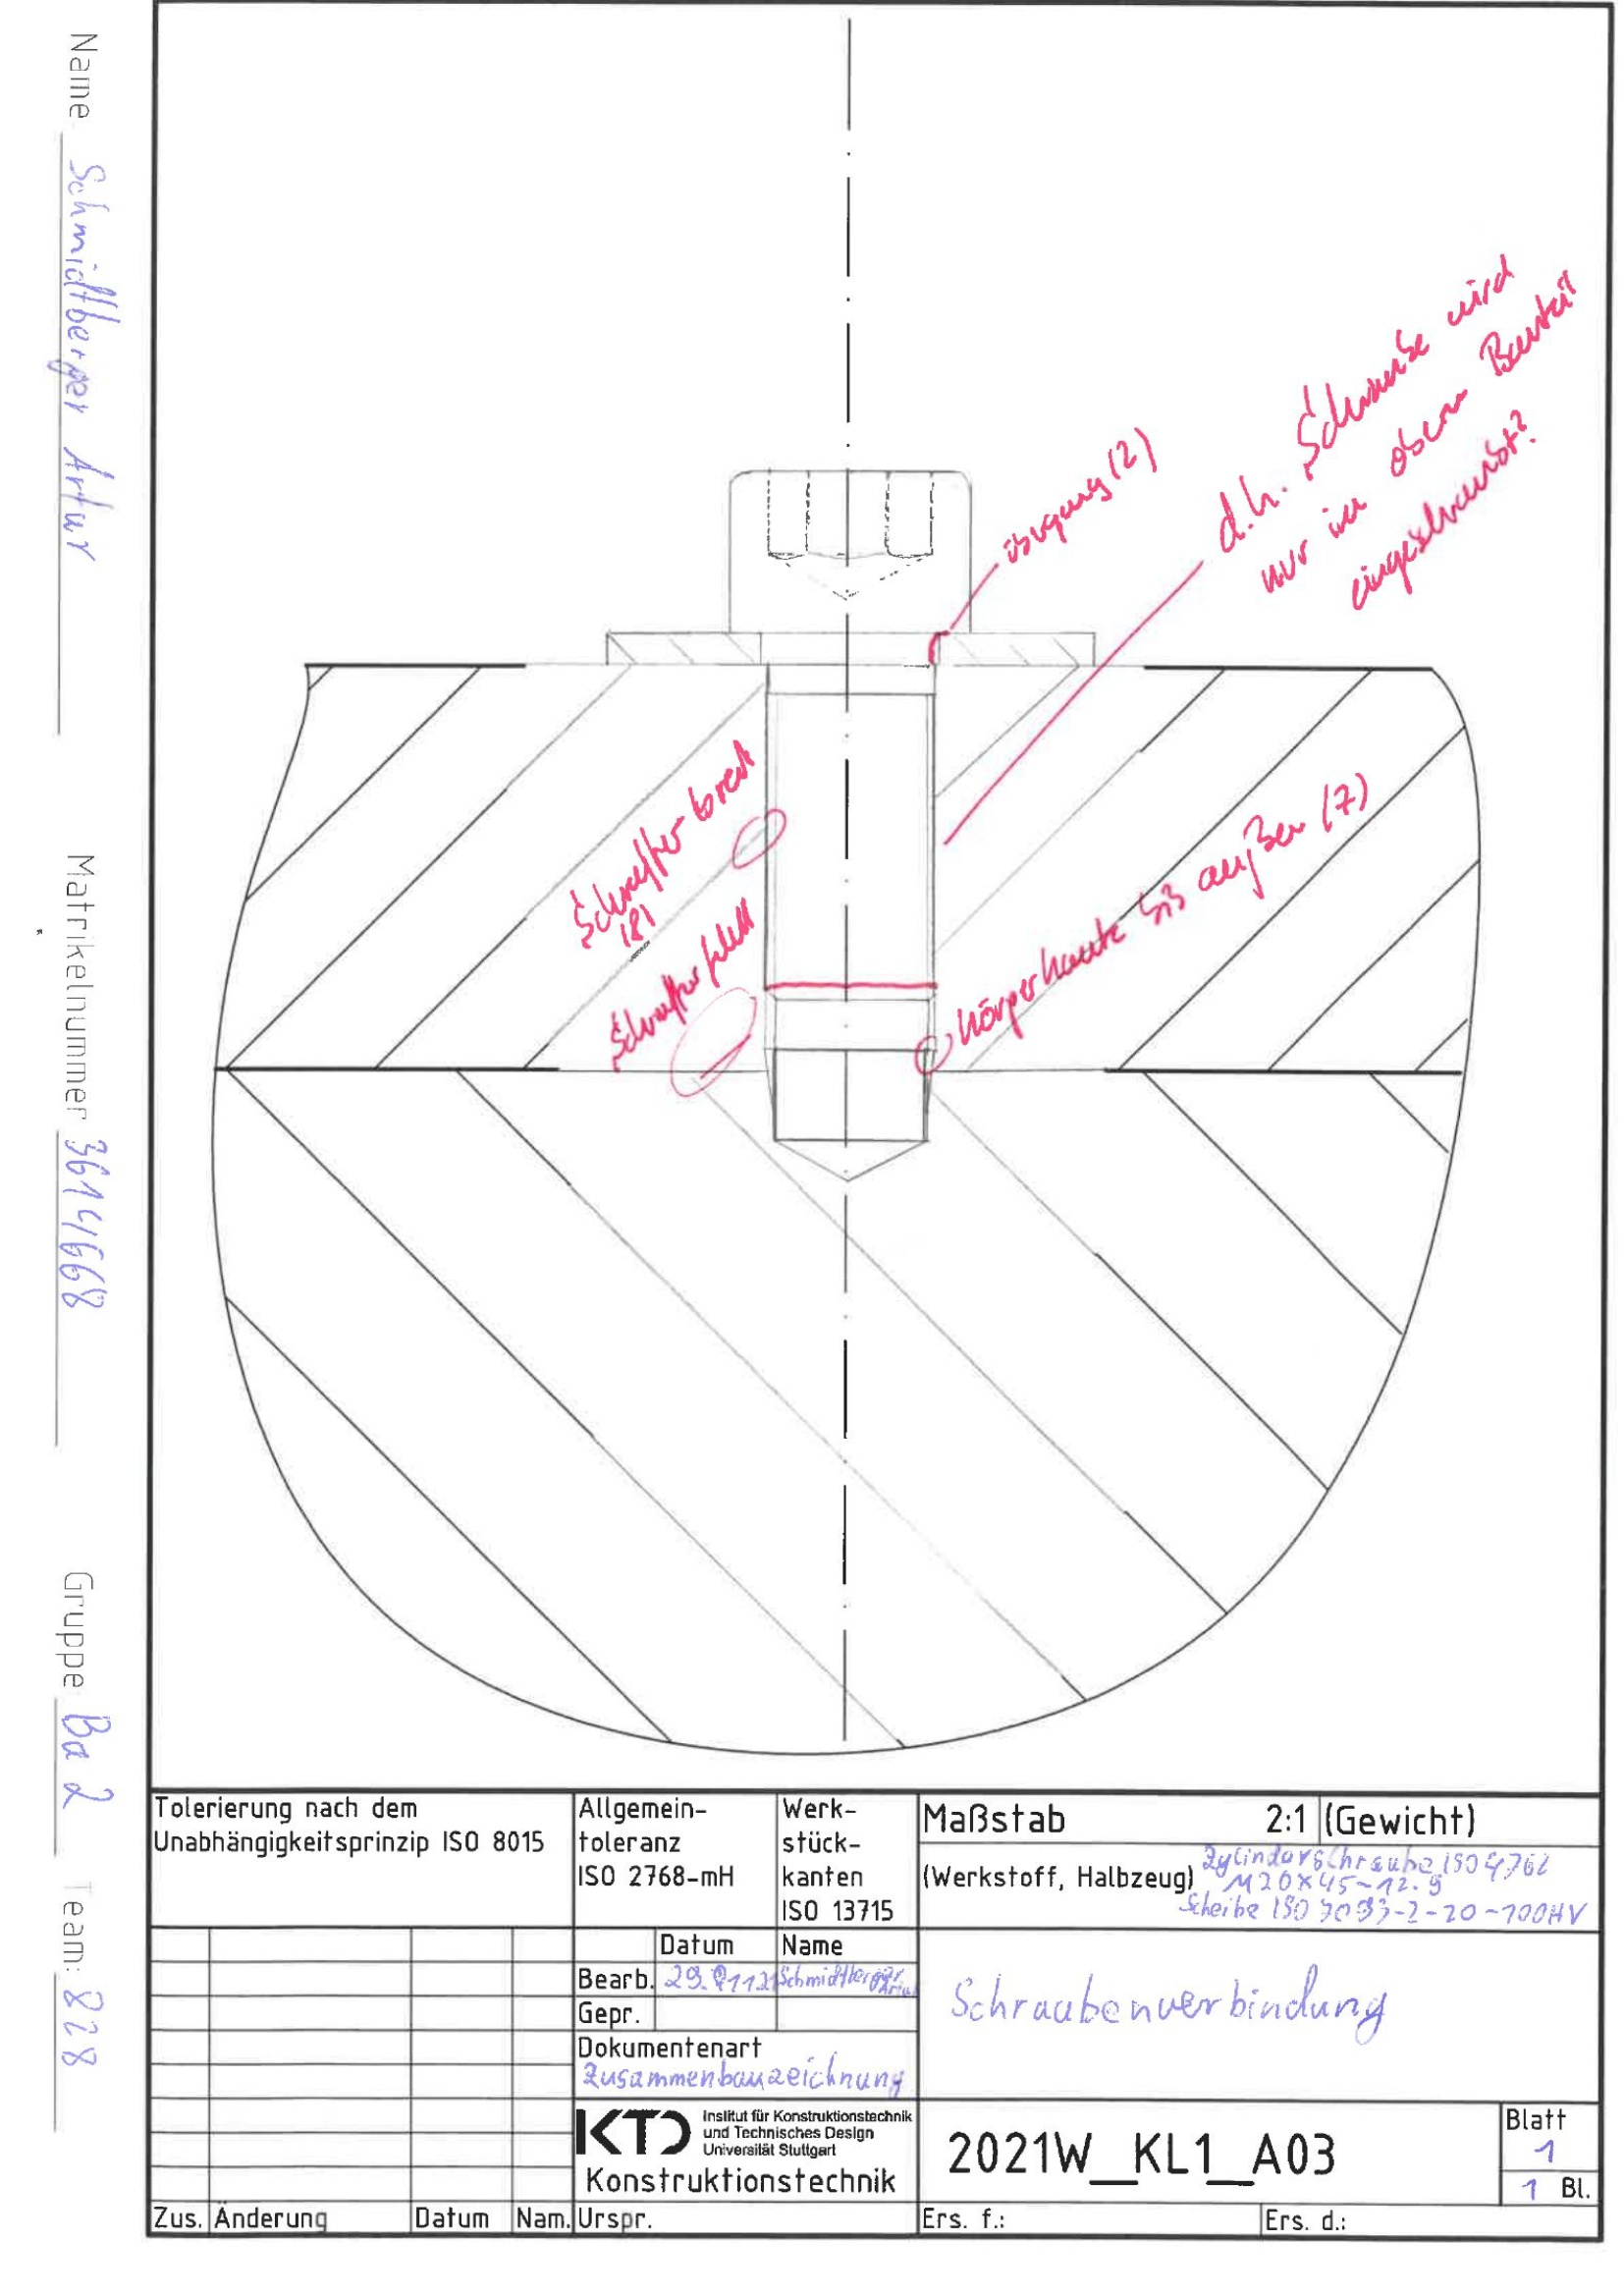 Name Schmidtberger Artur
Matrikelnummer 3614668
Gruppe Ba 2 Team: 828
(2)
d.h. Schraube wird
nur im oberen Bauteil
eingeschraubt?
Schraffur breit
(8)
Schraffur fehlt
Körperkante bis außen (7)
Tolerierung nach dem
Unabhängigkeitsprinzip ISO 8015
Allgemein-
toleranz
ISO 2768-mH
Werk-
stück-
kanten
ISO 13715
Maßstab 2:1 (Gewicht)
(Werkstoff, Halbzeug) Zylinderschraube ISO 4762
M20x45-12.9
Scheibe ISO 7093-2-20-200HV
Datum Name
Bearb. Schmidtberger
Artur
Gepr.
Dokumentenart
Zusammenbauzeichnung
Schraubenverbindung
KTD
Institut für Konstruktionstechnik
und Technisches Design
Universität Stuttgart
Konstruktionstechnik
2021W_KL1_A03
Blatt
1
1 Bl.
Zus. Änderung Datum Nam. Urspr. Ers. f.: Ers. d.: